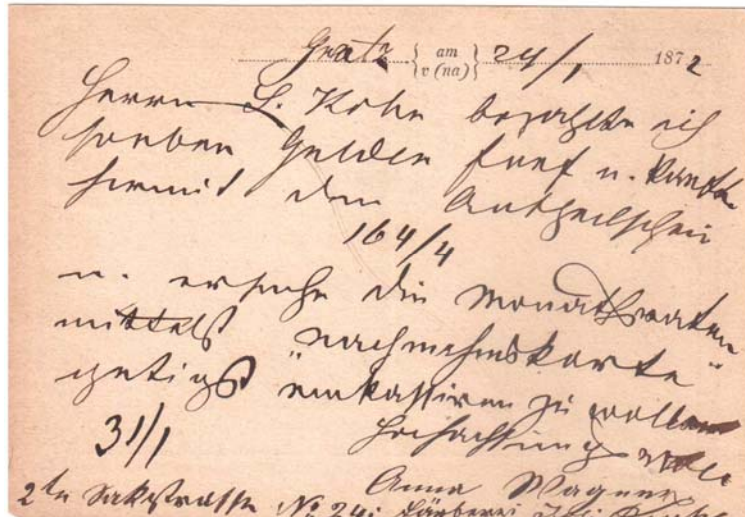 Gratz { am v (na) } 24/1 1872
Herrn L. Kohn bezahlte ich
soeben Gulden fünf u. kaufte
hiermit den Antheilschein
164/4
u. ersuche die Monatsraten
mittelst "Nachnahmskarte"
gütigst einkassiren zu wollen
31/1 Hochachtungsvoll
Anna Wagner
No 24: Färberei